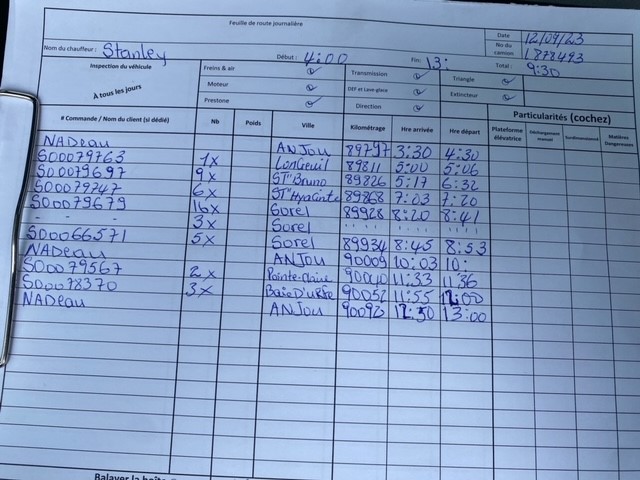 Feuille de route journalière
Date 12/09/23
Nom du chauffeur : Stanley Début : 4:00 Fin: 13: No du camion 1878493
Total : 9:30
Inspection du véhicule
À tous les jours
Freins & air Transmission Triangle
Moteur DEF et Lave-glace Extincteur
Prestone Direction
Particularités (cochez)
# Commande / Nom du client (si dédié) Nb Poids Ville Kilométrage Hre arrivée Hre départ Plateforme élévatrice Déchargement manuel Surdimensionné Matières Dangereuses
NADeau ANJOU 89797 3:30 4:30
SO0079763 1x LonGeuil 89811 5:00 5:06
SO0079697 9x ST-Bruno 89826 5:17 6:32
SO0079747 6x ST-HyaCinte 89868 7:03 7:20
SO0079679 16x Sorel 89928 8:20 8:41
- - - 3x Sorel " " " "
SO0066571 5x Sorel 89934 8:45 8:53
NADeau ANJOU 90009 10:03 10:
SO0079567 2x Pointe-Claire 90040 11:33 11:36
SO0078370 3x Baie D'urfe 90052 11:55 12:00
NADeau ANJOU 90092 12:50 13:00